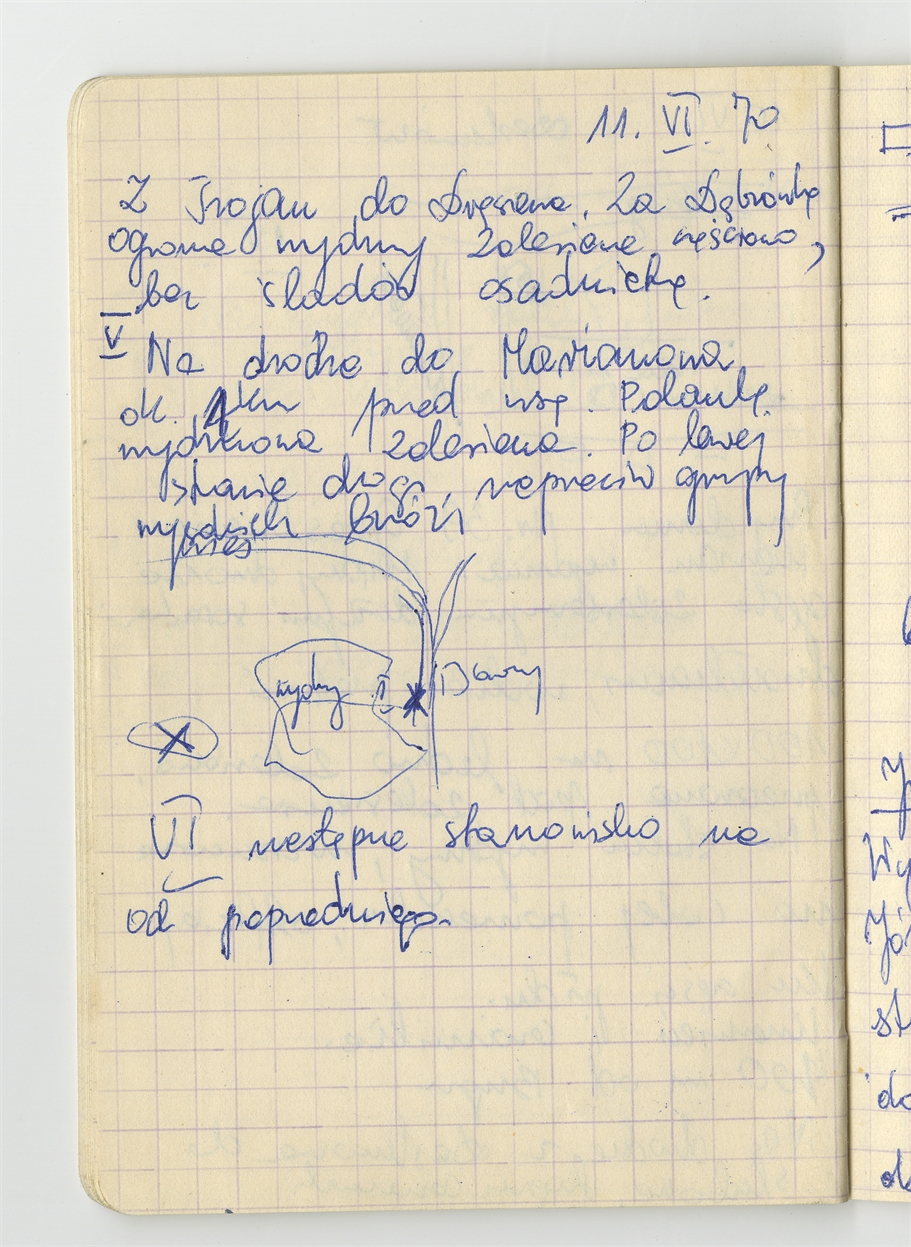 11. VI. 70
Z Trojan do Dręszewa. Za Dąbrówką
ogromne wydmy zalesione częściowo,
bez śladów osadnictwa.
V Na drodze do Marianowa
ok. 1 km przed wsią. Polanka
wydmowa zalesiona. Po lewej
stronie drogi, naprzeciw grupy
wysokich brzóz
wieś
wydmy
VI następne stanowisko na
od poprzedniego.